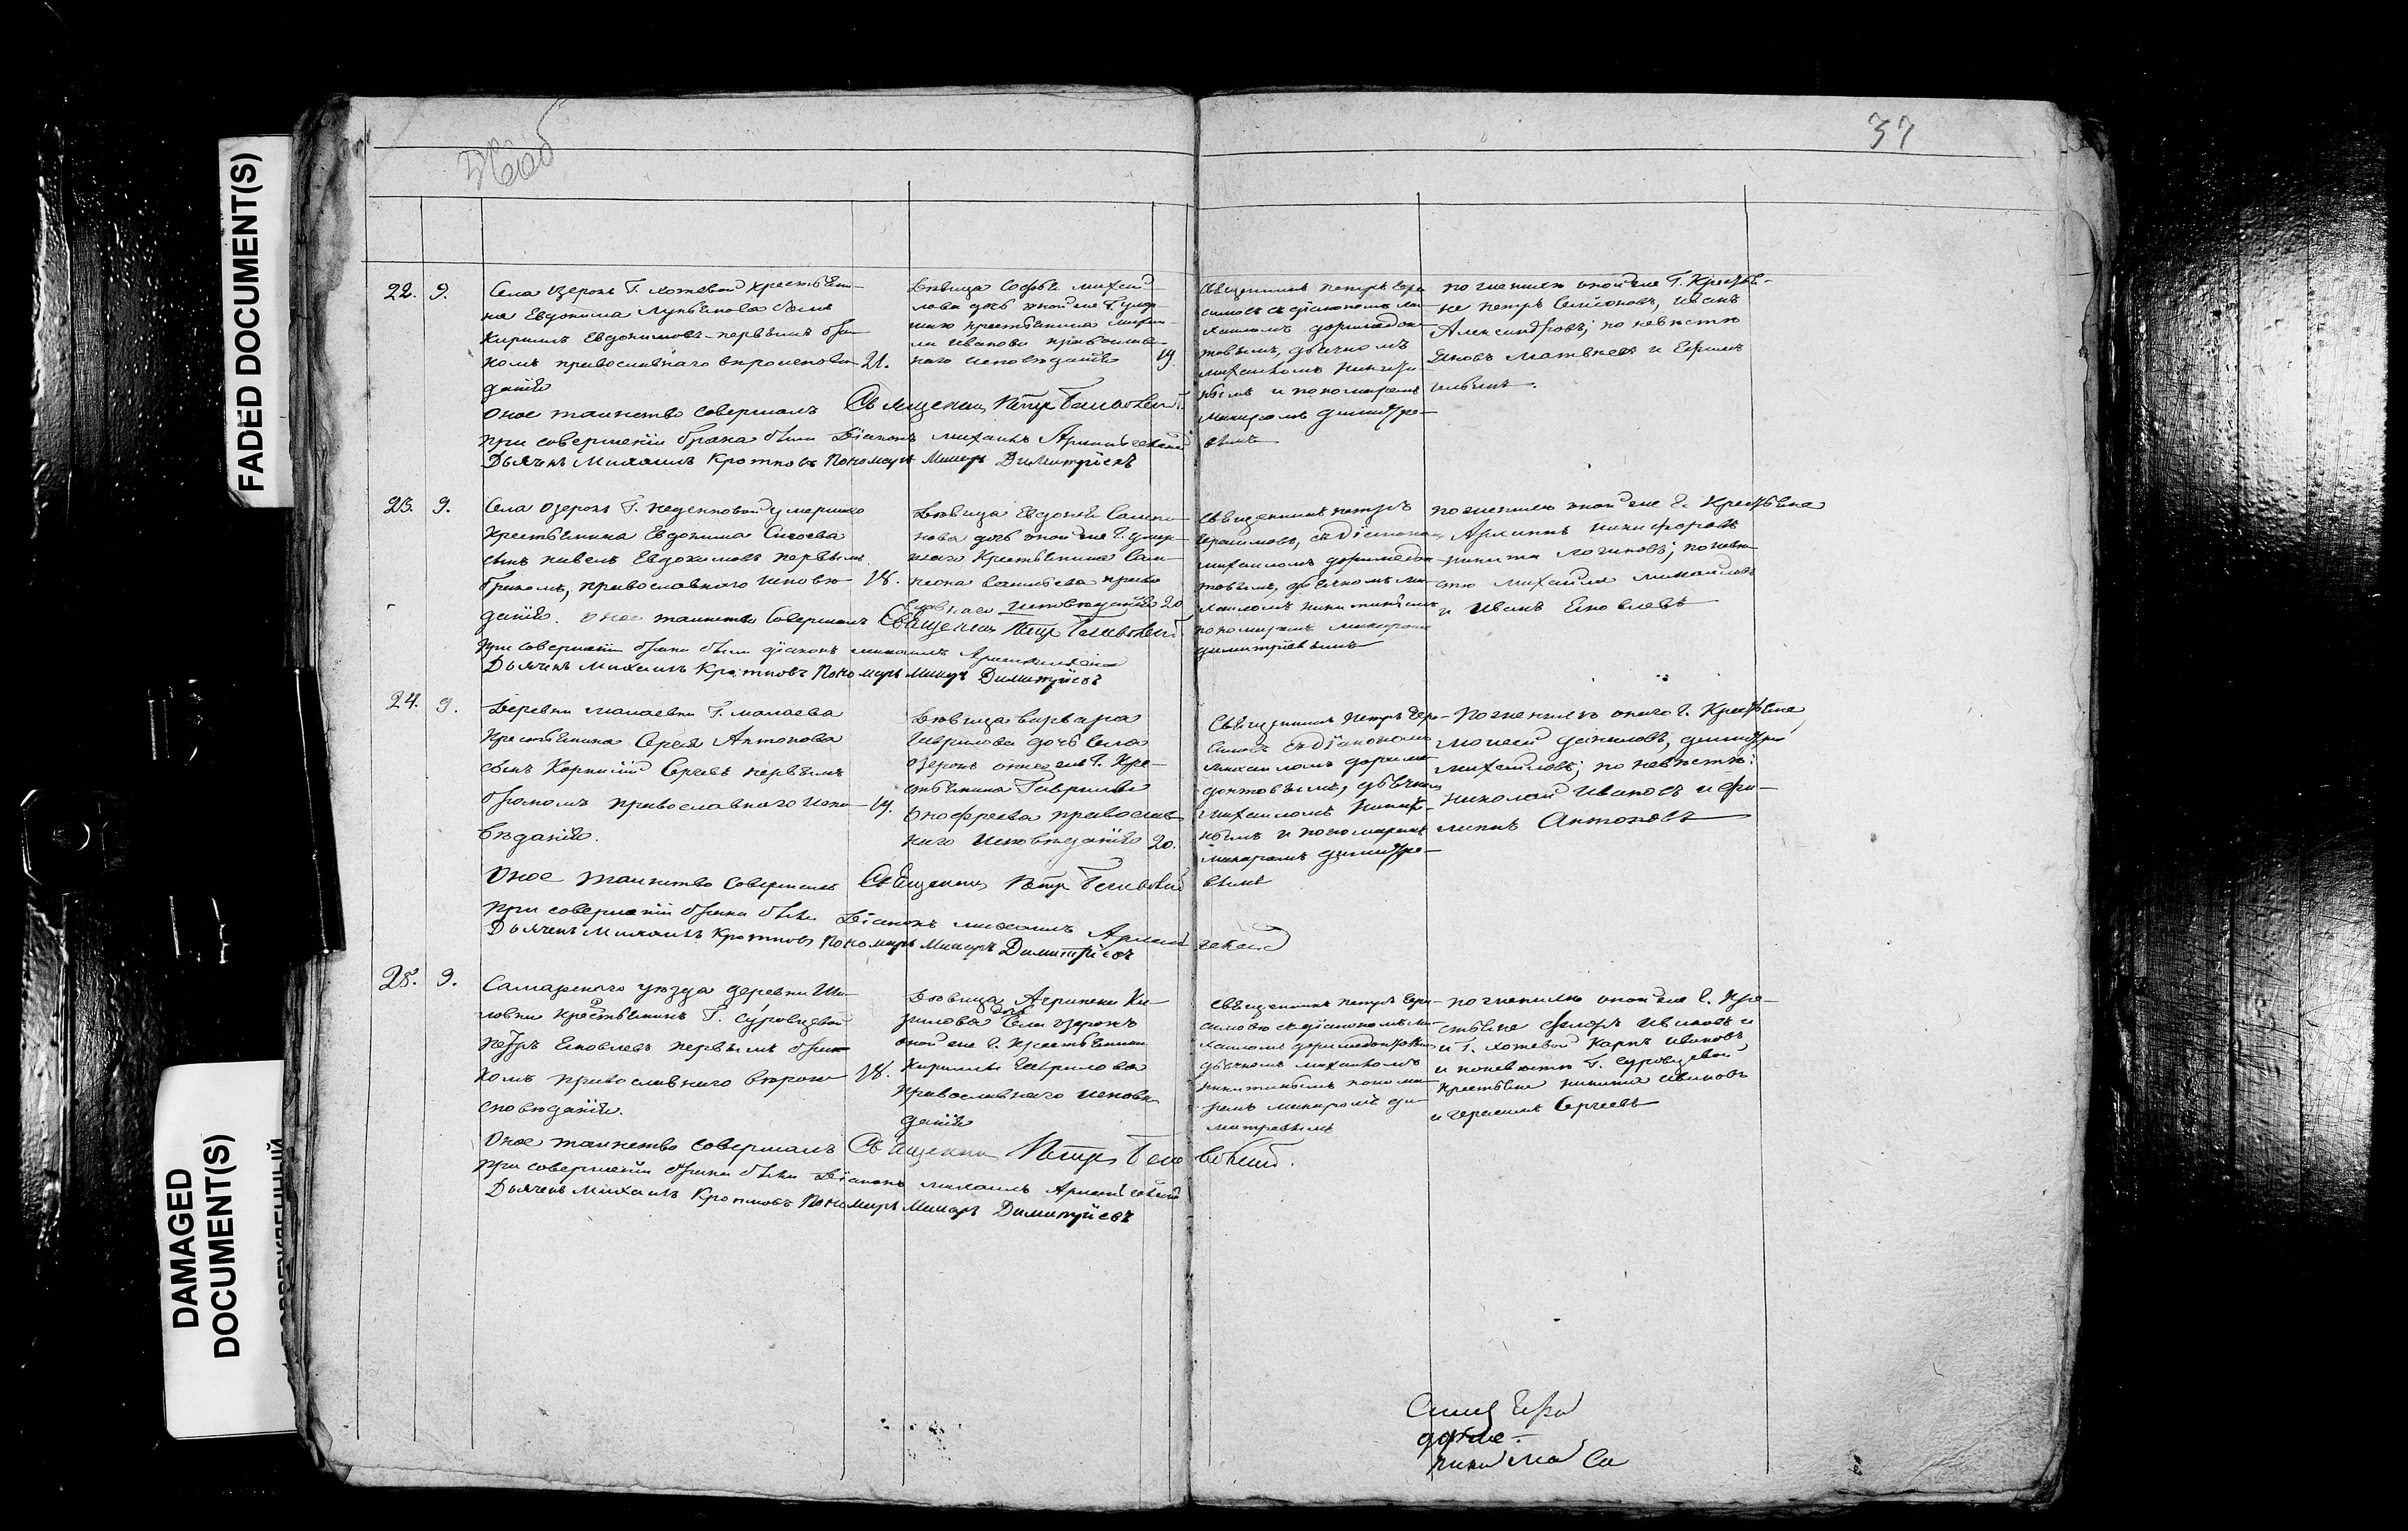 37
22. 9.
Села Озерокъ Г. Хотевой крестьяни-
на Евдокима Лукьянова сынъ
Кирилъ Евдокимовъ первымъ бра-
комъ православнаго вероисповѣ- 21.
данія
Девица Софья Михай-
лова дочь оной же Г. умер-
шаго крестьянина Михаи-
ла Иванова православ-
наго исповѣданія 19.
Священникъ Петръ Гера-
симовъ съ діакономъ Ми-
хаиломъ Доримедон-
товымъ, дьячкомъ
Михаиломъ Никити-
нымъ и пономаремъ
Макаромъ Димитре-
вымъ
по женихѣ оной же Г. Крестья-
не Петръ Семіоновъ, Иванъ
Александровъ; по невѣстѣ
Яковъ Матвеевъ и Ефимъ
Оное таинство совершалъ Священникъ Петръ
при совершеніи брака были Діаконъ Михаилъ
Дьячекъ Михаилъ Кротковъ Пономарь Макаръ Димитріевъ
23. 9.
Села Озерокъ Г. умершаго
Крестьянина Евдокима Сысоева
сынъ Павелъ Евдокимовъ первымъ
бракомъ, православнаго исповѣ- 18.
данія.
Девица Евдокія Самсо-
нова дочь оной же Г. умер-
шаго Крестьянина Сам-
сона Васильева право
славнаго исповѣданія 20
Священникъ Петръ
Герасимовъ, съ Діакономъ
Михаиломъ Доримедон-
товымъ, дьячкомъ Ми-
хаиломъ Никитинымъ
пономаремъ Макаромъ
Димитріевымъ
по женихѣ оной же Г. Крестьяне
Архипъ Никифоровъ
Никита Логиновъ; по невѣ-
стѣ Михайла Михайловъ
и Иванъ Яковлевъ
Оное таинство совершалъ Священникъ Петръ
При совершеніи брака были діаконъ Михаилъ
Дьячекъ Михаилъ Кротковъ Пономарь Макаръ Димитріевъ
24. 9.
Деревни Малаевки Г. Малаева
Крестьянина Сергея Антонова
сынъ Корнилій Сергеевъ первымъ
бракомъ православнаго испо- 19.
вѣданія.
Девица Варвара
Гаврилова дочь Села
Озерокъ оной же Г. Кре-
стьянина Гаврилы
Онофреева православ
наго исповѣданія 20.
Священникъ Петръ Гера-
симовъ съ Діакономъ
Михаиломъ Дориме-
донтовымъ, дьячкомъ
Михаиломъ Никити-
нымъ и пономаремъ
Макаромъ Димитре-
вымъ
По женихѣ онаго Г. Крестьяне
Моисей Даниловъ, Димитрій
Михайловъ; по невѣстѣ:
Николай Ивановъ и Фи-
липъ Антоновъ
Оное таинство совершалъ Священникъ Петръ
При совершеніи брака были Діаконъ Михаилъ
Дьячекъ Михаилъ Кротковъ Пономарь Макаръ Димитріевъ
25. 9.
Самарскаго уѣзда деревни Ши-
ловки крестьянинъ Г. Суровцевой
Петръ Яковлевъ первымъ бра-
комъ православнаго верои- 18.
сповѣданія.
Девица Агрипена Ки-
рилова дочь Села Озерокъ
оной же Г. Крестьянина
Кирилы Гаврилова
православнаго исповѣ-
данія
Священникъ Петръ Гера-
симовъ съ діакономъ Ми-
хаиломъ Доримедонтовымъ
дьячкомъ Михаиломъ
Никитинымъ понома-
ремъ Макаромъ Ди-
митревымъ
по женихѣ оной же Г. Кре-
стьяне Федоръ Ивановъ и
и Г. Хотевой Карпъ Ивановъ
и по невѣстѣ Г. Суровцевой
крестьяне Никита Ивановъ
и Герасимъ Сергеевъ
Оное таинство совершалъ Священникъ Петръ
При совершеніи брака были Діаконъ Михаилъ
Дьячекъ Михаилъ Кротковъ Пономарь Макаръ Димитріевъ
FADED DOCUMENT(S)
DAMAGED
DOCUMENT(S)